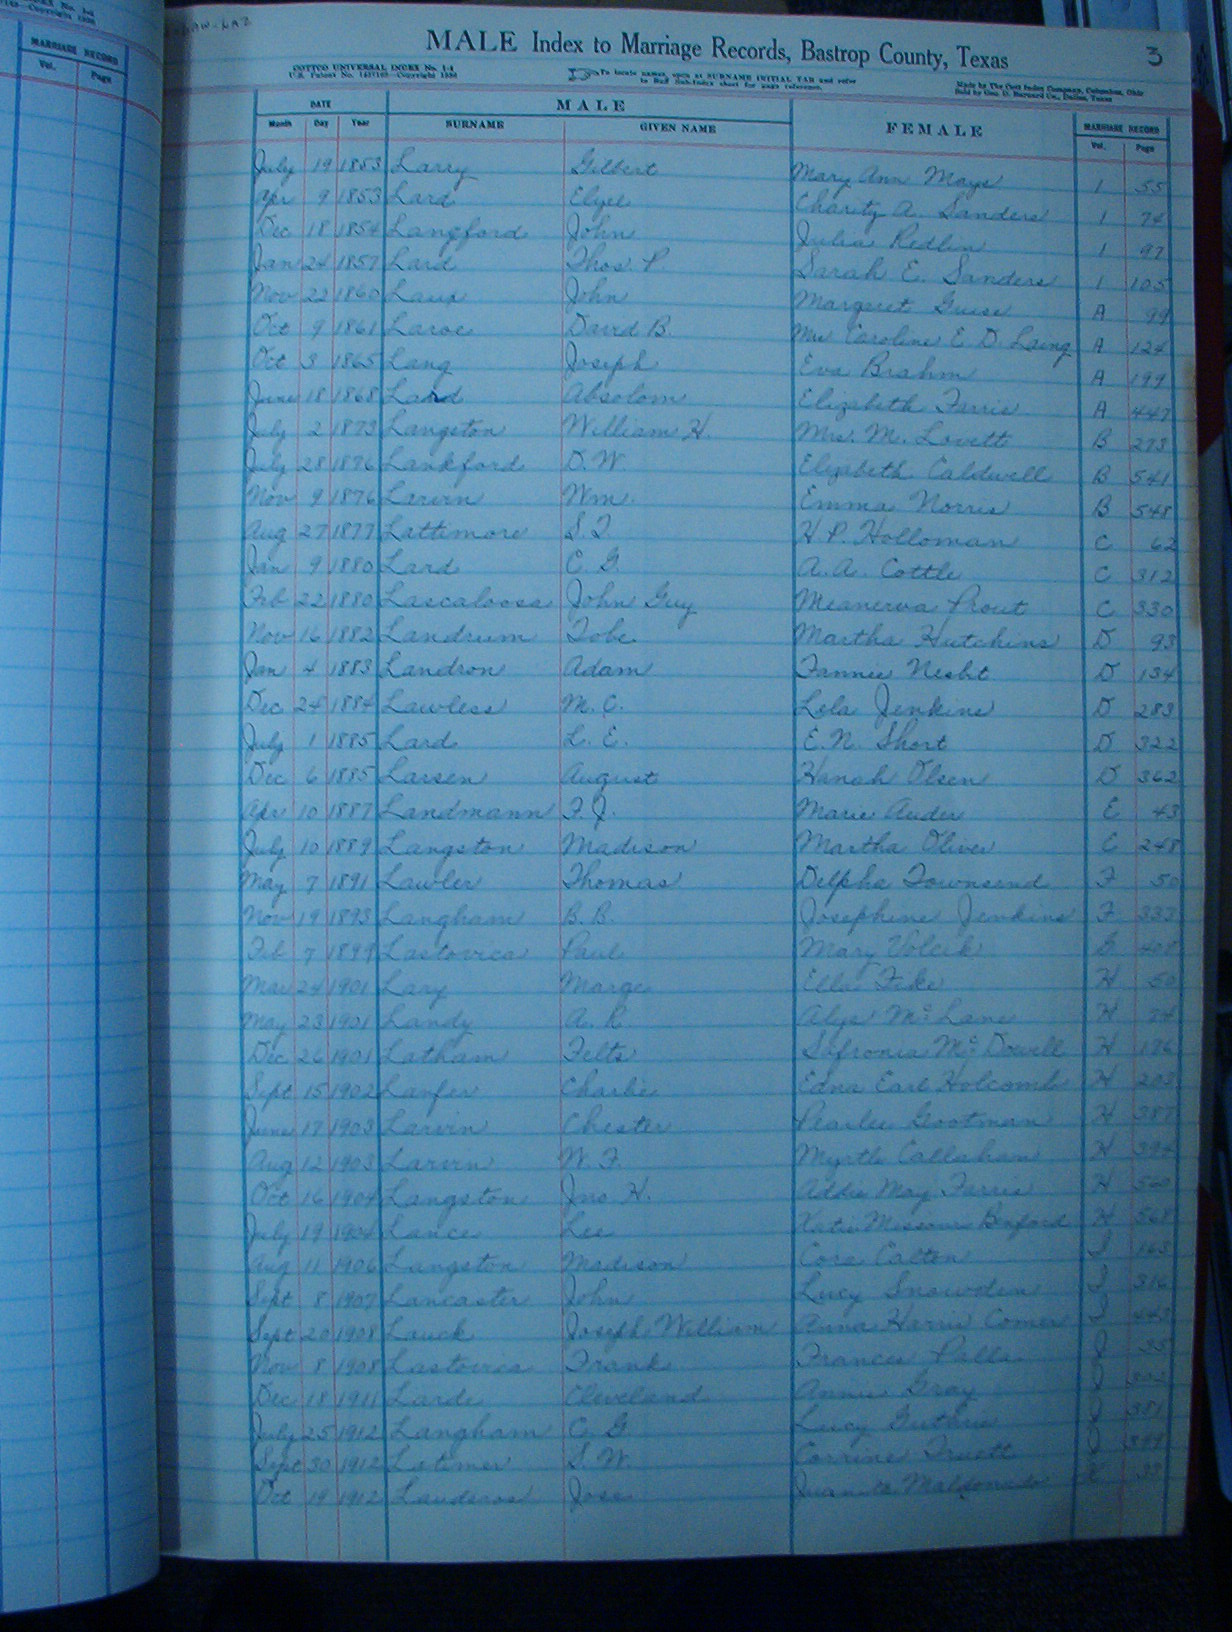 MARRIAGE RECORD
Vol. Page
LAW-LAZ
MALE Index to Marriage Records, Bastrop County, Texas 3
COTTCO UNIVERSAL INDEX No. 1-4
To locate names, open at SURNAME INITIAL TAB and refer
to Buff Sub-Index sheet for page reference.
Made by The Cott Index Company, Columbus, Ohio
Sold by Geo. D. Barnard Co., Dallas, Texas
DATE MALE FEMALE MARRIAGE RECORD
Month Day Year SURNAME GIVEN NAME Vol. Page
July 19 1853 Larry Gilbert Mary Ann Mays 1 55
Apr 9 1853 Lard Charity A. Sanders 1 74
Dec 18 1854 Langford John Julia Redlin 1 97
Jan 24 1857 Lard Thos. P. Sarah E. Sanders 1 105
Nov 22 1860 Laux John Margaret Guise A 99
Oct 9 1861 Laroe David B. Mrs Caroline E. D. Laing A 124
Oct 3 1865 Lang Joseph Eva Brahm A 199
June 18 1868 Lard Absolom Elizabeth Farris A 447
July 2 1873 Langston William H. Mrs. M. Lovett B 273
July 28 1876 Lankford D. W. Elizabeth Caldwell B 541
Nov 9 1876 Larvin Wm. Emma Norris B 548
Aug 27 1877 Lattimore S. T. H. P. Holloman C 62
Jan 9 1880 Lard C. G. A. A. Cottle C 312
Feb 22 1880 Lascaloosa John Guy Meanerva Prout C 330
Nov 16 1882 Landrum Tobe Martha Hutchins D 93
Jan 4 1883 Landron Adam Fannie Nesbt D 134
Dec 24 1884 Lawless M. C. Lela Jenkins D 283
July 1 1885 Lard L. E. E. N. Short D 322
Dec 6 1885 Larsen August Hanah Olsen D 362
Apr 10 1887 Landmann F. J. Marie Auder E 43
July 10 1889 Langston Madison Martha Oliver 248
May 7 1891 Lawler Thomas Delpha Townsend F 50
Nov 19 1893 Langham B. B. Josephine Jenkins F 333
Feb 7 1899 Lastovica Paul Mary Volcik G 408
Mar 24 1901 Lary Marge Ella Fike H 50
May 23 1901 Landy A. R. Alys McLane H 74
Dec 26 1901 Latham Felts Safronia McDowell H 186
Sept 15 1902 Lanfer Charlie Edna Earl Holcomb H 203
June 17 1903 Larvin Chester Pearlee Gootman H 387
Aug 12 1903 Larvin W. F. Myrtle Callahan H 394
Oct 16 1904 Langston Jno H. Addie May Farris H 560
July 19 1904 Lance Lee Katie Missouri Binford H 568
Aug 11 1906 Langston Madison Cora Calton I 163
Sept 8 1907 Lancaster John Lucy Snowden I 316
Sept 20 1908 Lauck Joseph William Anna Harris Comer I 443
Nov 8 1908 Lastovica Frank Frances Palla J 35
Dec 18 1911 Larde Cleveland Annie Gray J 302
July 25 1912 Langham C. G. Lucy Guthrie J 381
Sept 30 1912 Latimer S. W. Corrine Truett J
Oct 19 1912 Landeros Jose Juanita Maldonado K 37